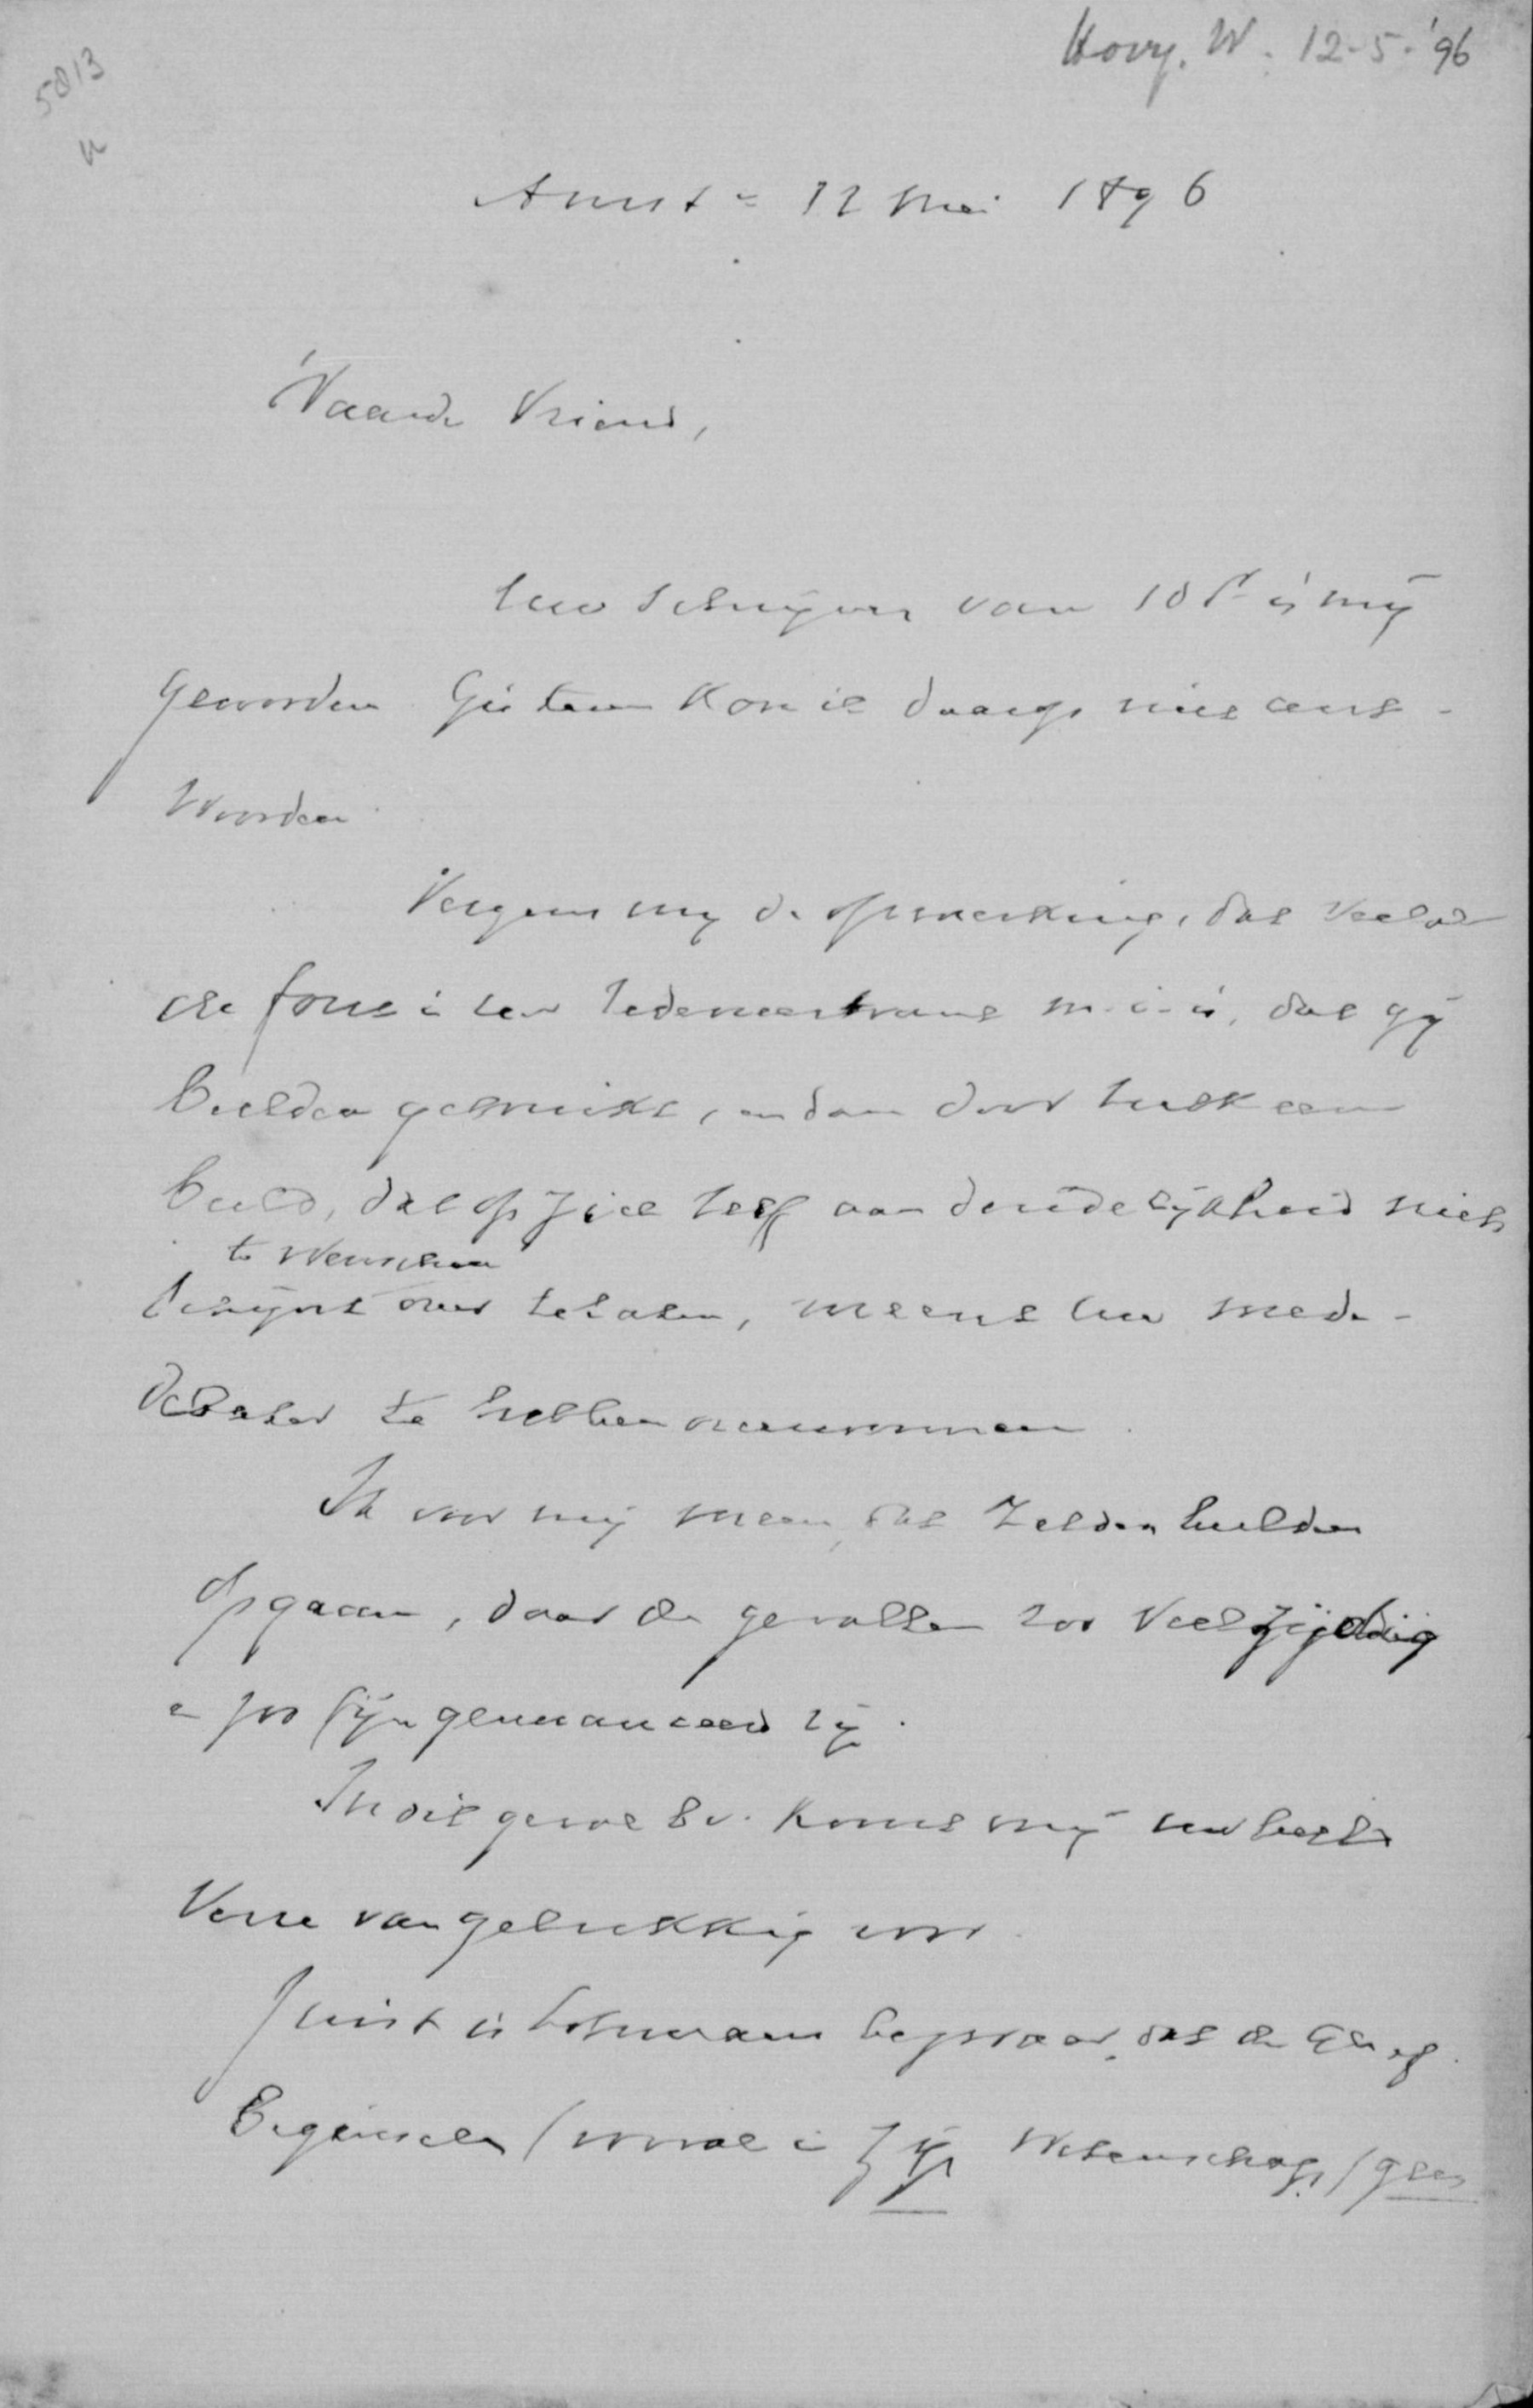 Hovy. W. 12-5-'96
5813
Amst. 12 Mei 1896
Waarde Vriend,
Uw schrijven van 10 is mij
geworden. Gisteren kon ik daarop niet ant-
woorden.
Vergun mij de opmerking, dat veelal
de fout in uw redeneertrant m.i. is, dat gij
beelden gebruikt, en dan door zulk een
beeld, dat op zich zelf aan duidelijkheid niets
te wenschen
schijnt over te laten, meent uw mede-
debater te hebben overwonnen.
Ik voor mij meen, dat zelden beelden
opgaan, daar de gevallen zoo veelzijdig
en zoo fijn genuanceerd zijn.
In dit geval bv. komt mij uw beeld
verre van gelukkig voor.
Juist is Lohman's bezwaar, dat de Geref.
beginselen (vooral in zijn wetenschap) geen